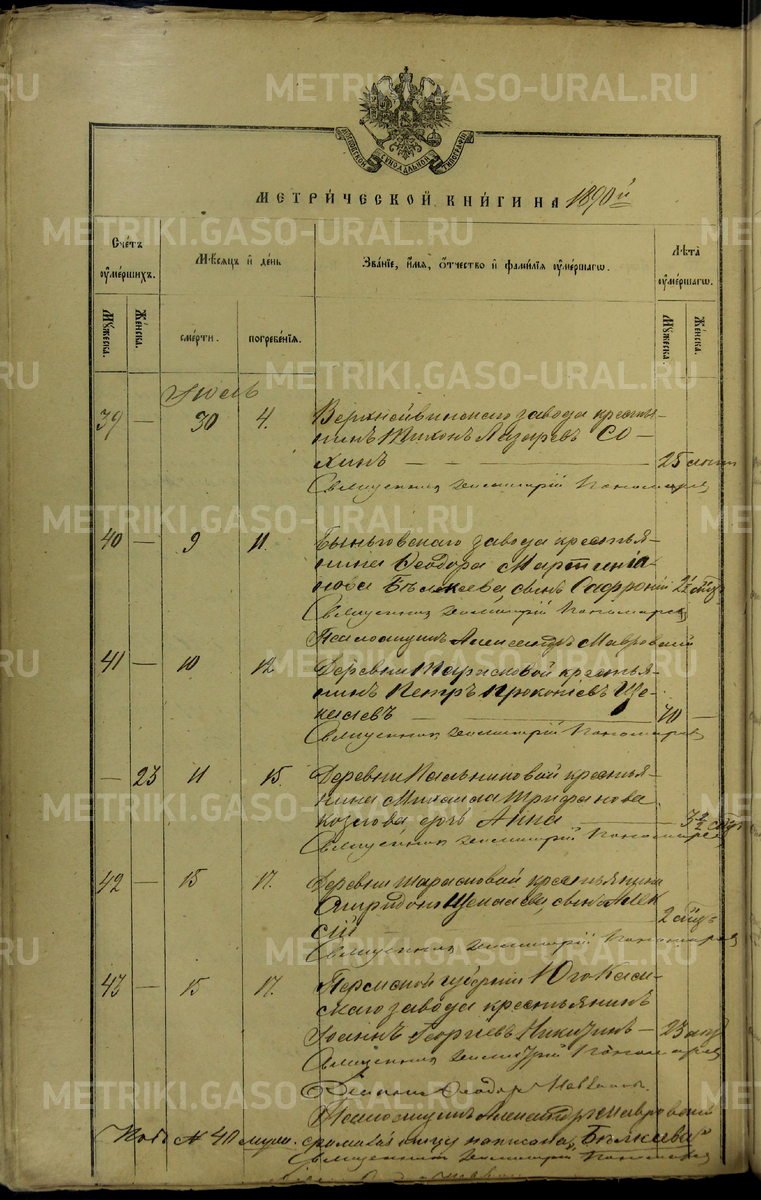 МЕТРИ́ЧЕСКОЙ КНИ́ГИ НА 1890й
Сче́тъ оумершихъ.
Мѣсяцъ и́ де́нь
Зва́нїе, и́мя, о́тчество и́ фами́лїя оуме́ршагѡ.
Лѣ́та оуме́ршагѡ.
Му́жеска.
Же́нска.
сме́рти.
погребе́нїя.
Му́жеска.
Же́нска.
Июль
39 — 30 4. Верхнейвинскаго завода кресть-
янинъ Тихонъ Лазаревъ Со-
хинъ — — 25 лѣтъ
Священникъ Димитрій Пономаревъ
40 — 9 11. Быньговскаго завода крестья-
нина Ѳеодора Мартинiа-
нова Бѣлкеева сынъ Софроній 2½
Священникъ Димитрій Пономаревъ
Псаломщикъ Александръ Мавровскій
41 — 10 12 Деревни Тарасковой крестья-
нинъ Петръ Прокопіевъ Ще-
калевъ — 70 —
Священникъ Димитрій Пономаревъ
— 23 11 15. Деревни Пальниковой крестья-
нина Михаила Трифанова
Козлова дочь Анна —
Священникъ Димитрій Пономаревъ
42 — 15 17. Деревни Тарасковой крестьянина
Спиридона Щекалева сынъ Алек-
сій — 2
Священникъ Димитрій Пономаревъ
43 — 15 17. Пермской губерніи Юго-Кам-
скаго завода крестьянинъ
Іоаннъ Георгіевъ Никитинъ — 23
Священникъ Димитрій Пономаревъ
Псаломщикъ Александръ Мавровскій
Подъ № 40 написано „Бѣлкеева"
Священникъ Димитрій Пономаревъ
METRIKI.GASO-URAL.RU